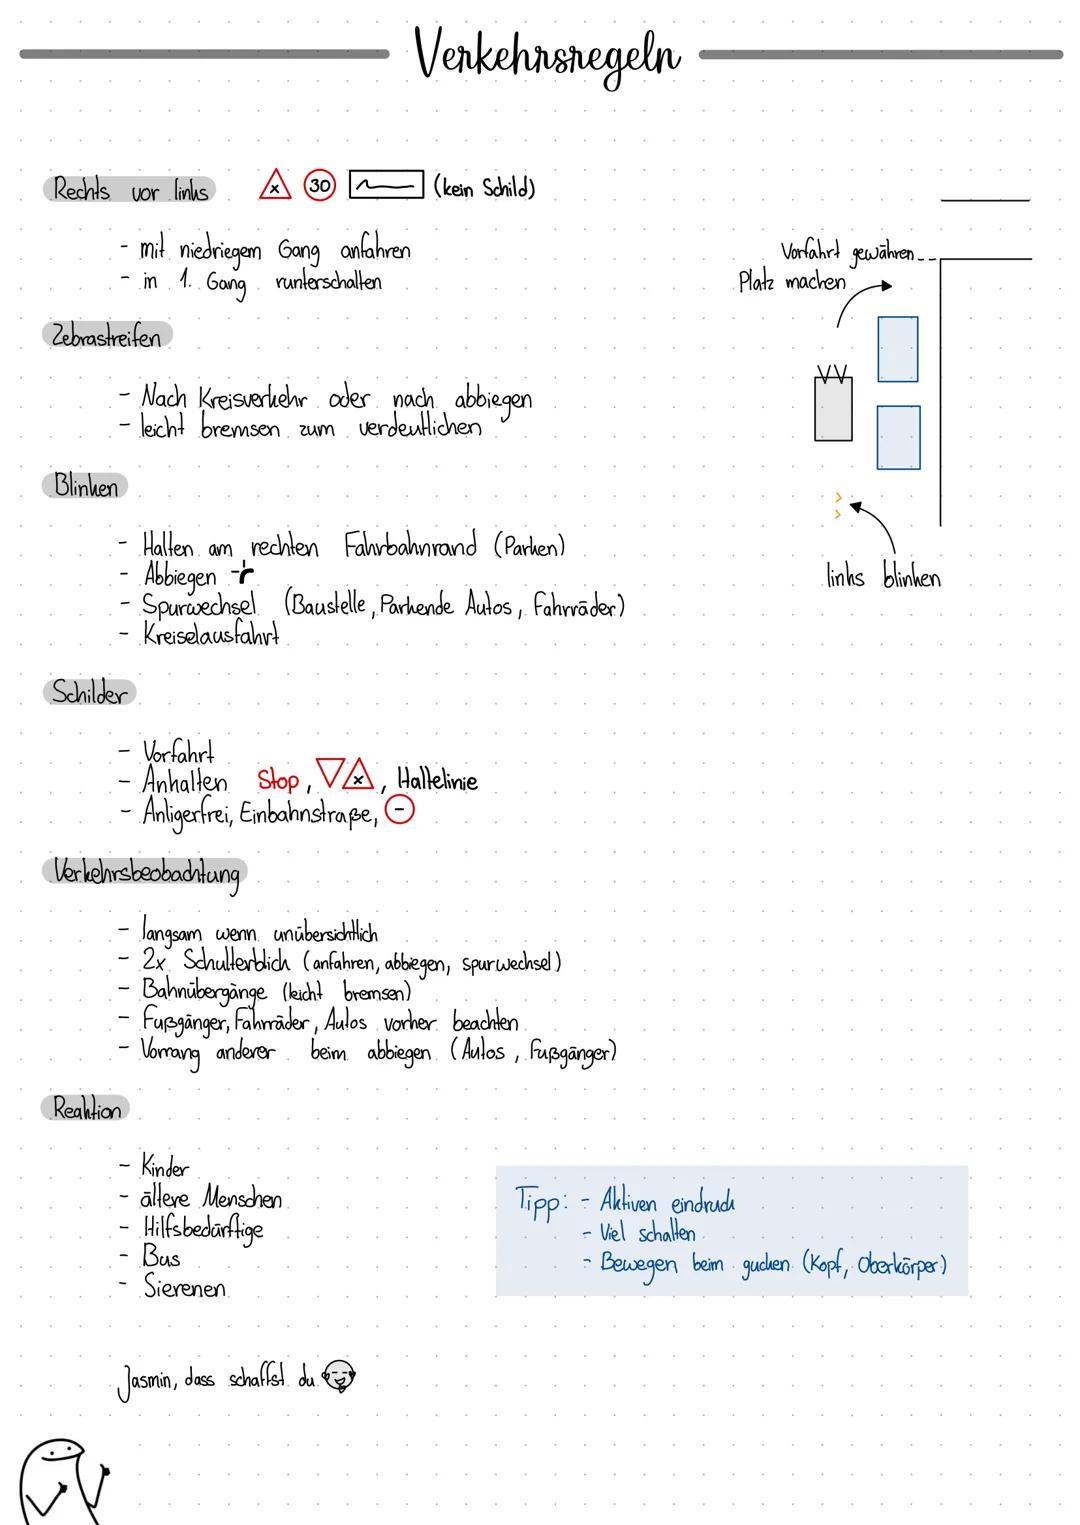 Verkehrsregeln
Rechts vor links x 30 (kein Schild)
- mit niedriegem Gang anfahren
- in 1. Gang runterschalten
Vorfahrt gewähren
Platz machen
links blinken
Zebrastreifen
- Nach Kreisverkehr oder nach abbiegen
- leicht bremsen zum verdeutlichen
Blinken
- Halten am rechten Fahrbahnrand (Parken)
- Abbiegen
- Spurwechsel (Baustelle, Parkende Autos, Fahrräder)
- Kreiselausfahrt
Schilder
- Vorfahrt
- Anhalten Stop, x, Haltelinie
- Anligerfrei, Einbahnstraße, -
Verkehrsbeobachtung
- langsam wenn unübersichtlich
- 2x Schulterblick (anfahren, abbiegen, spurwechsel)
- Bahnübergänge (leicht bremsen)
- Fußgänger, Fahrräder, Autos vorher beachten
- Vorrang anderer beim abbiegen (Autos, Fußgänger)
Reaktion
- Kinder
- ältere Menschen
- Hilfsbedürftige
- Bus
- Sierenen
Tipp: - Aktiven eindruck
- Viel schalten
- Bewegen beim gucken (Kopf, Oberkörper)
Jasmin, dass schaffst du